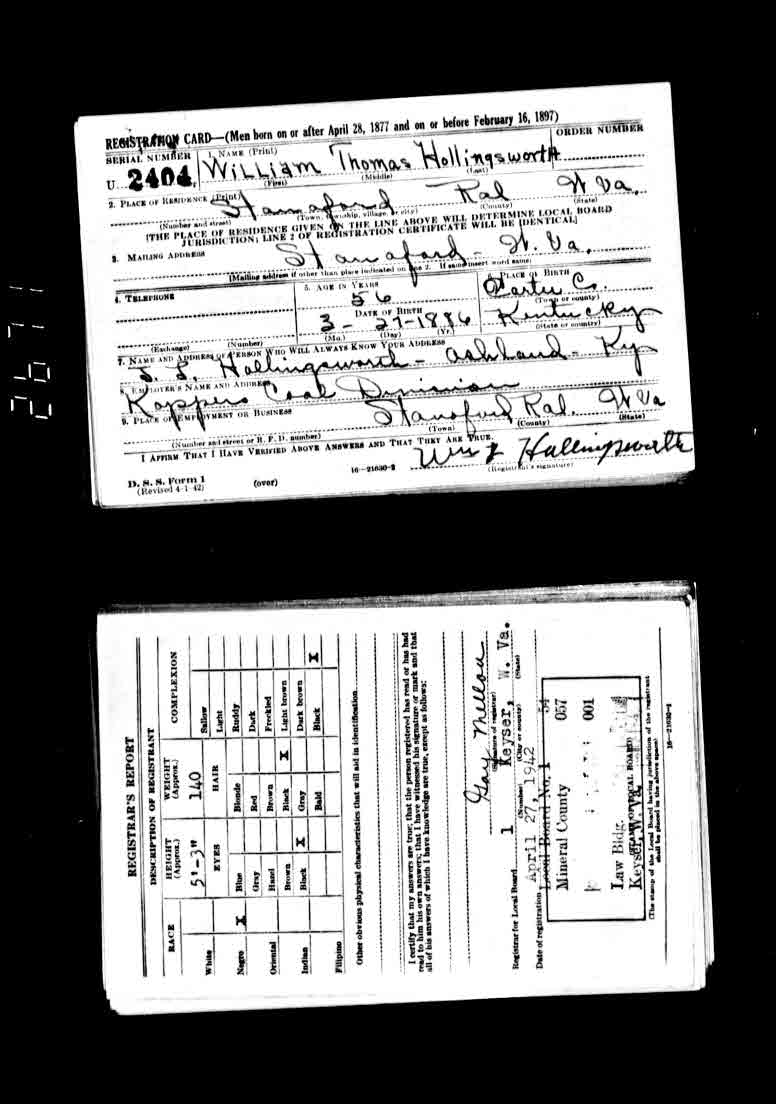 REGISTRATION CARD—(Men born on or after April 28, 1877 and on or before February 16, 1897)
SERIAL NUMBER 1. NAME (Print) ORDER NUMBER
U 2404 William Thomas Hollingsworth
(First) (Middle) (Last)
2. PLACE OF RESIDENCE (Print)
Stanaford Ral W Va.
(Number and street) (Town, township, village, or city) (County) (State)
[THE PLACE OF RESIDENCE GIVEN ON THE LINE ABOVE WILL DETERMINE LOCAL BOARD
JURISDICTION; LINE 2 OF REGISTRATION CERTIFICATE WILL BE IDENTICAL]
3. MAILING ADDRESS
Stanaford - W. Va.
[Mailing address if other than place indicated on line 2. If same insert word same]
4. TELEPHONE 5. AGE IN YEARS 6. PLACE OF BIRTH
56 Carter Co.
DATE OF BIRTH (Town or county)
3 - 27-1886 Kentucky
(Exchange) (Number) (Mo.) (Day) (Yr.) (State or country)
7. NAME AND ADDRESS OF PERSON WHO WILL ALWAYS KNOW YOUR ADDRESS
J. L. Hollingsworth - Ashland - Ky
8. EMPLOYER'S NAME AND ADDRESS
Koppers Coal Division
9. PLACE OF EMPLOYMENT OR BUSINESS
Stanaford Ral. W Va
(Number and street or R. F. D. number) (Town) (County) (State)
I AFFIRM THAT I HAVE VERIFIED ABOVE ANSWERS AND THAT THEY ARE TRUE.
Wm T Hollingsworth
D. S. S. Form 1 16—21630-2 (Registrant's signature)
(Revised 4-1-42) (over)
2671
REGISTRAR'S REPORT
DESCRIPTION OF REGISTRANT
RACE HEIGHT (Approx.) WEIGHT (Approx.) COMPLEXION
5'-3" 140 Sallow
White EYES HAIR Light
Negro X Blue Blonde Ruddy
Gray Red Dark
Oriental Hazel Brown Freckled
Brown Black X Light brown
Indian Black X Gray Dark brown
Bald Black X
Filipino
Other obvious physical characteristics that will aid in identification
I certify that my answers are true; that the person registered has read or has had
read to him his own answers; that I have witnessed his signature or mark and that
all of his answers of which I have knowledge are true, except as follows:
Gay Mellon
(Signature of registrar)
Registrar for Local Board 1 Keyser, W. Va.
(Number) (City or county) (State)
Date of registration April 27, 1942
Local Board No. 1 54
Mineral County 057
001
Law Bldg.
Keyser, W. Va.
(STAMP OF LOCAL BOARD)
(The stamp of the Local Board having jurisdiction of the registrant
shall be placed in the above space)
16—21630-1